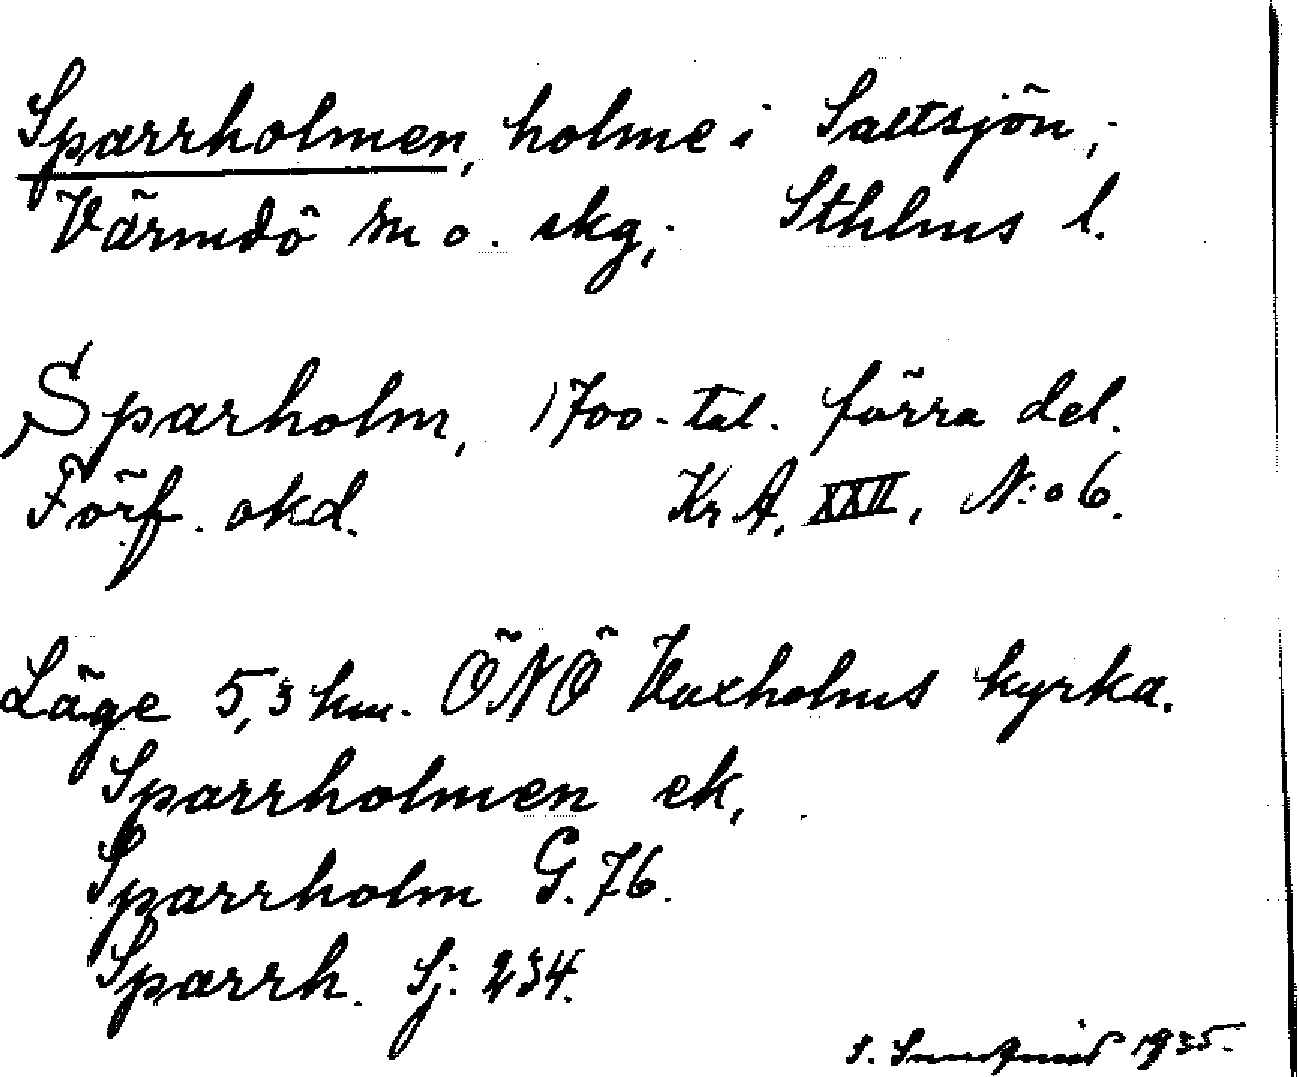 Sparrholmen, holme i Saltsjön,
Värmdö hd o. skg, Sthlms l.
Sparholm, 1700-tal. förra del.
Förf. okd. Kr A. XXII, N:o 6.
Läge 5,3 km. ÖNÖ Vaxholms kyrka.
Sparrholmen ek,
Sparrholm G. 76.
Sparrh. Sj: 234.
1935.